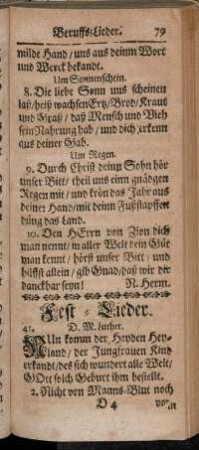 Beruffs-Lieder. 79
milde Hand / uns aus deinm Wort
und Werck bekandt.
Um Sonnenschein.
8. Die liebe Sonn uns scheinen
laß / heiß wachsen Ertz / Brod / Kraut
und Graß / daß Mensch und Vieh
sein Nahrung hab / und dich erkenn
aus deiner Gab.
Um Regen.
9. Durch Christ deinn Sohn hör
unser Bitt / theil uns einn gnädgen
Regen mit / und krön das Jahr aus
deiner Hand / mit deinn Fußstapffen
düng das Land.
10. Den HErrn von Zion dich
man nennt / in aller Welt dein Güt
man kennt / hörst unser Bitt / und
hilffst allein / gib Gnad / daß wir dir
danckbar seyn! N. Herm.
Fest-Lieder.
41. D. M. Luther.
NUn komm der Heyden Hey-
land / der Jungfrauen Kind
erkandt / des sich wundert alle Welt /
GOtt solch Geburt ihm bestellt.
2. Nicht von Manns-Blut noch
D 4 vom